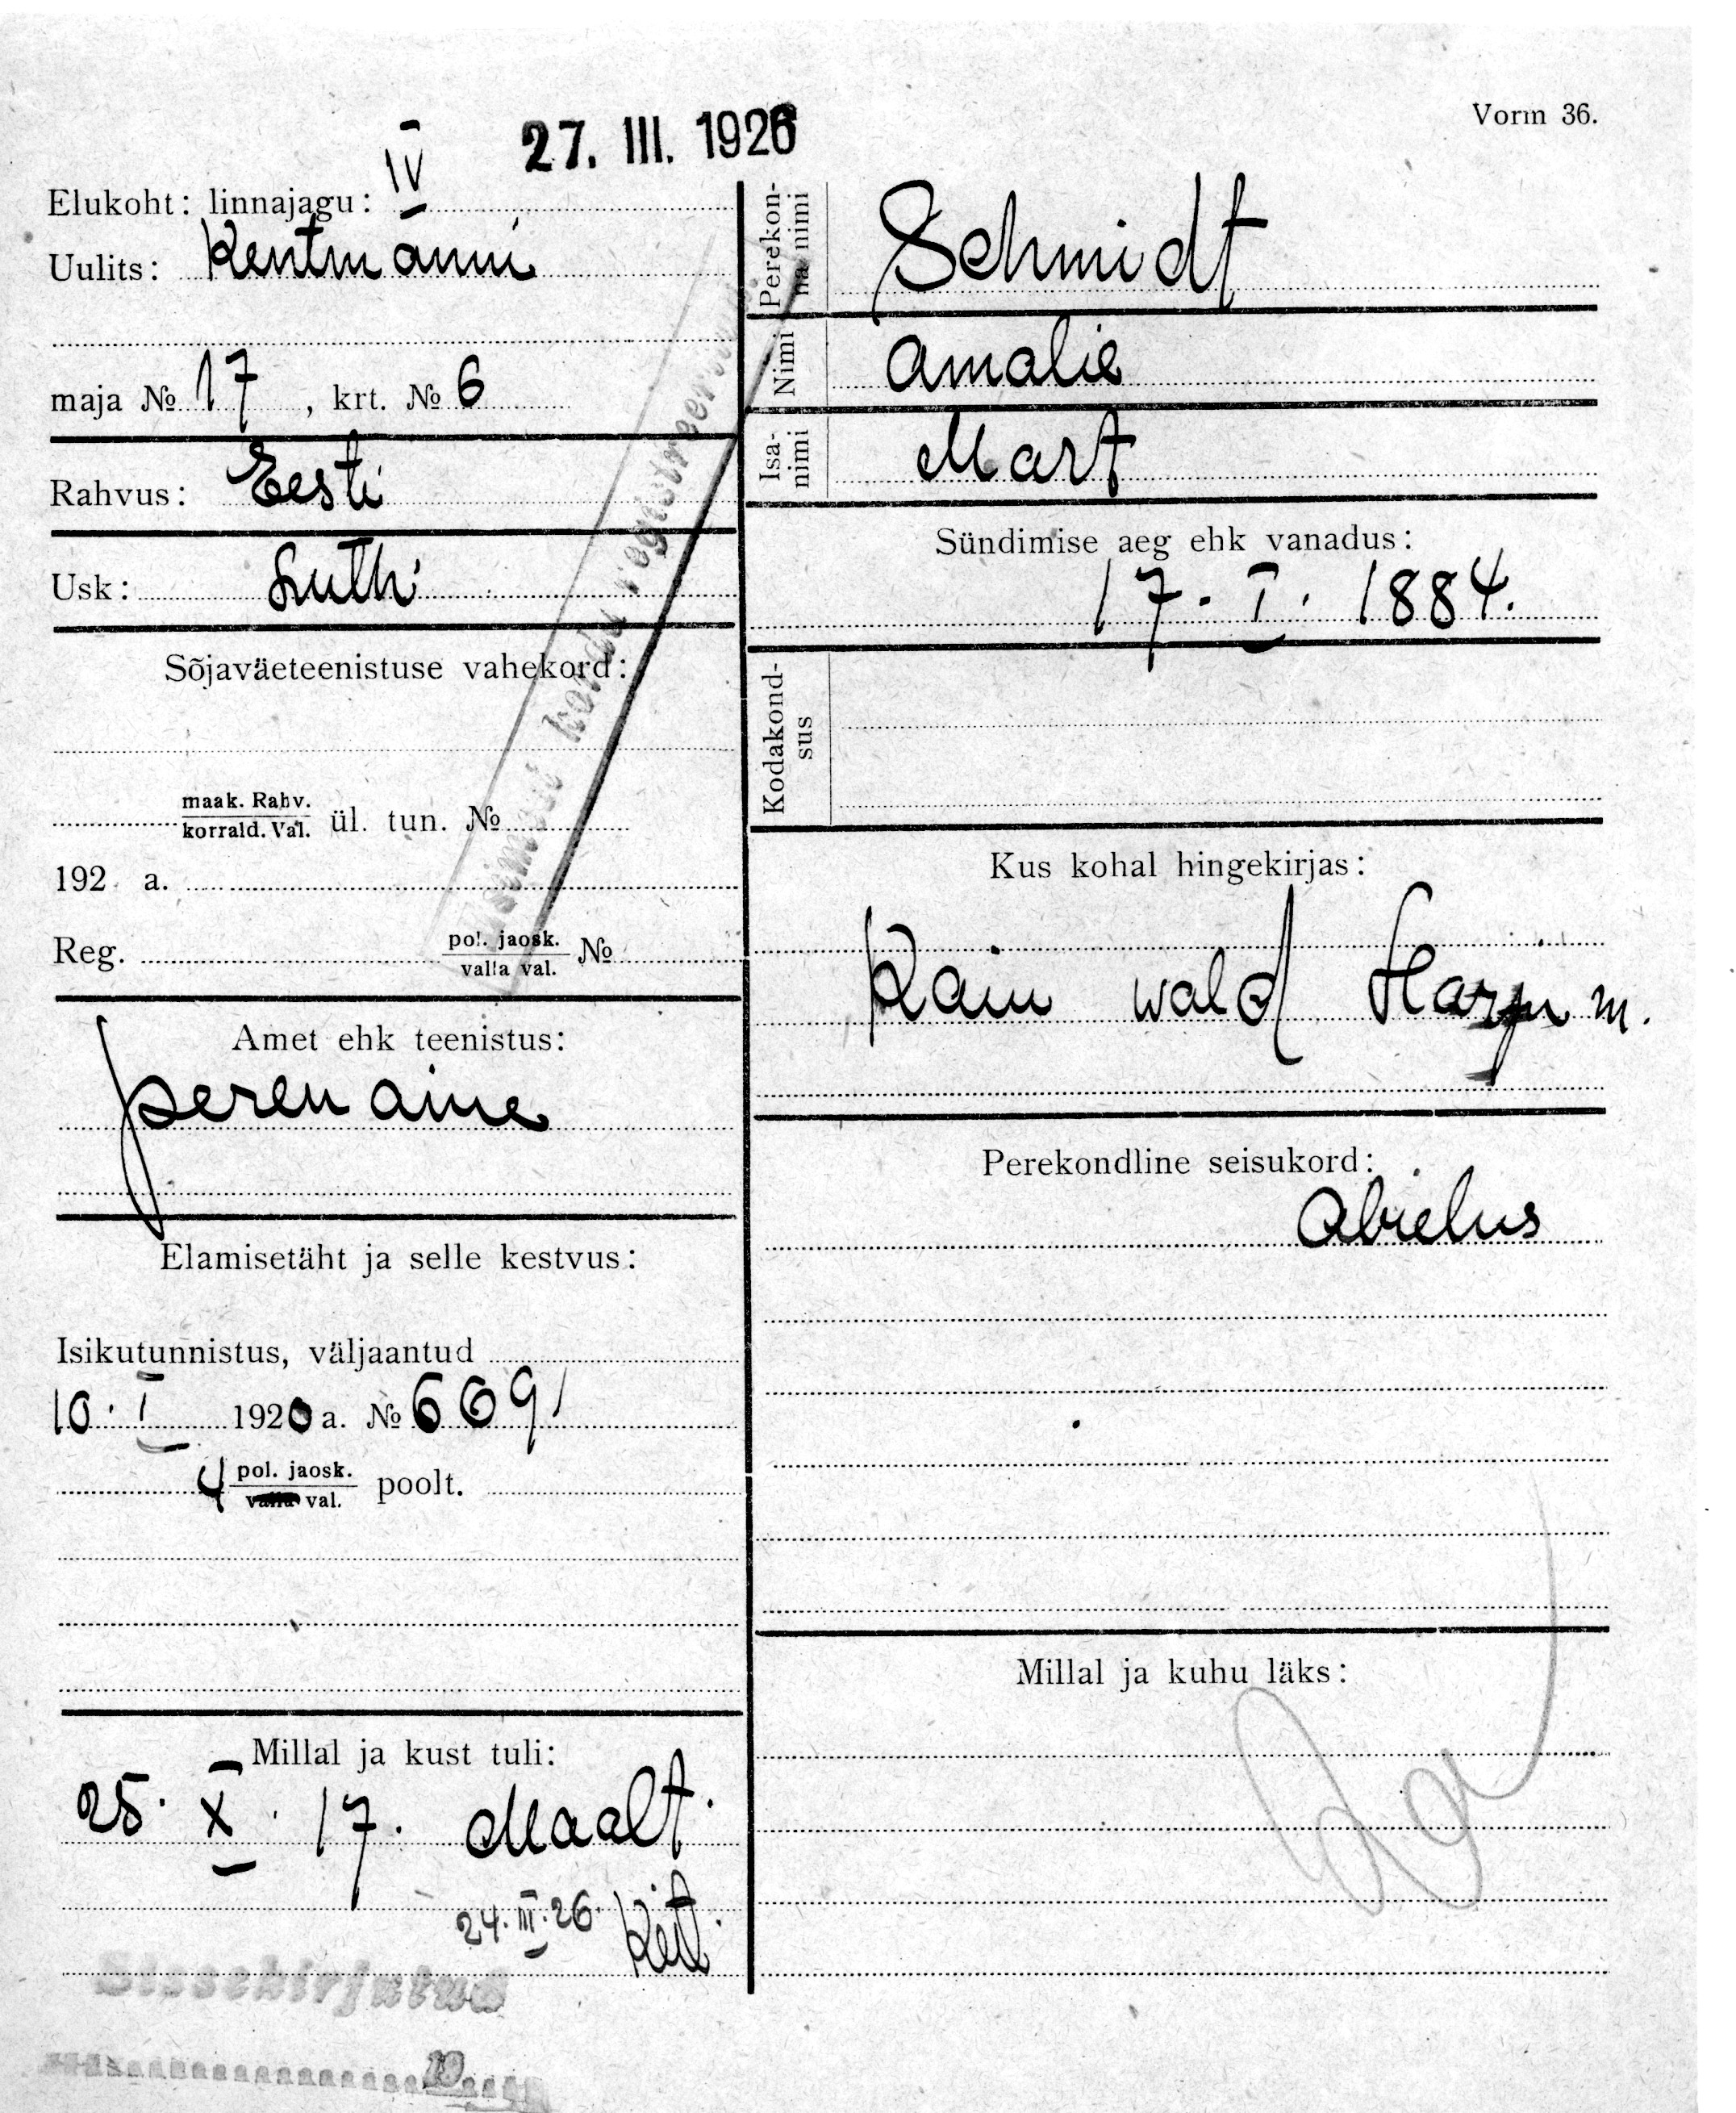 27. III. 1926
Vorm 36.
Elukoht: linnajagu: IV
Uulits: Kentmanni
maja № 17, krt. № 6
Rahvus: Eesti
Usk: Luth.
Sõjaväeteenistuse vahekord:
maak. Rahv.
korrald. Val. ül. tun. №
192 a.
Reg. pol. jaosk.
valla val. №
Esimest korda registreeritud
Amet ehk teenistus:
perenaine
Elamisetäht ja selle kestvus:
Isikutunnistus, väljaantud
10. I 1920 a. № 6691
4 pol. jaosk.
valla val. poolt.
Millal ja kust tuli:
25. X. 17. Maalt.
24. III. 26.
Sissekirjutud
19
Perekonna nimi
Schmidt
Nimi
Amalie
Isanimi
Mart
Sündimise aeg ehk vanadus:
17. I. 1884.
Kodakondsus
Kus kohal hingekirjas:
wald Harju m.
Perekondline seisukord:
Abielus
Millal ja kuhu läks: